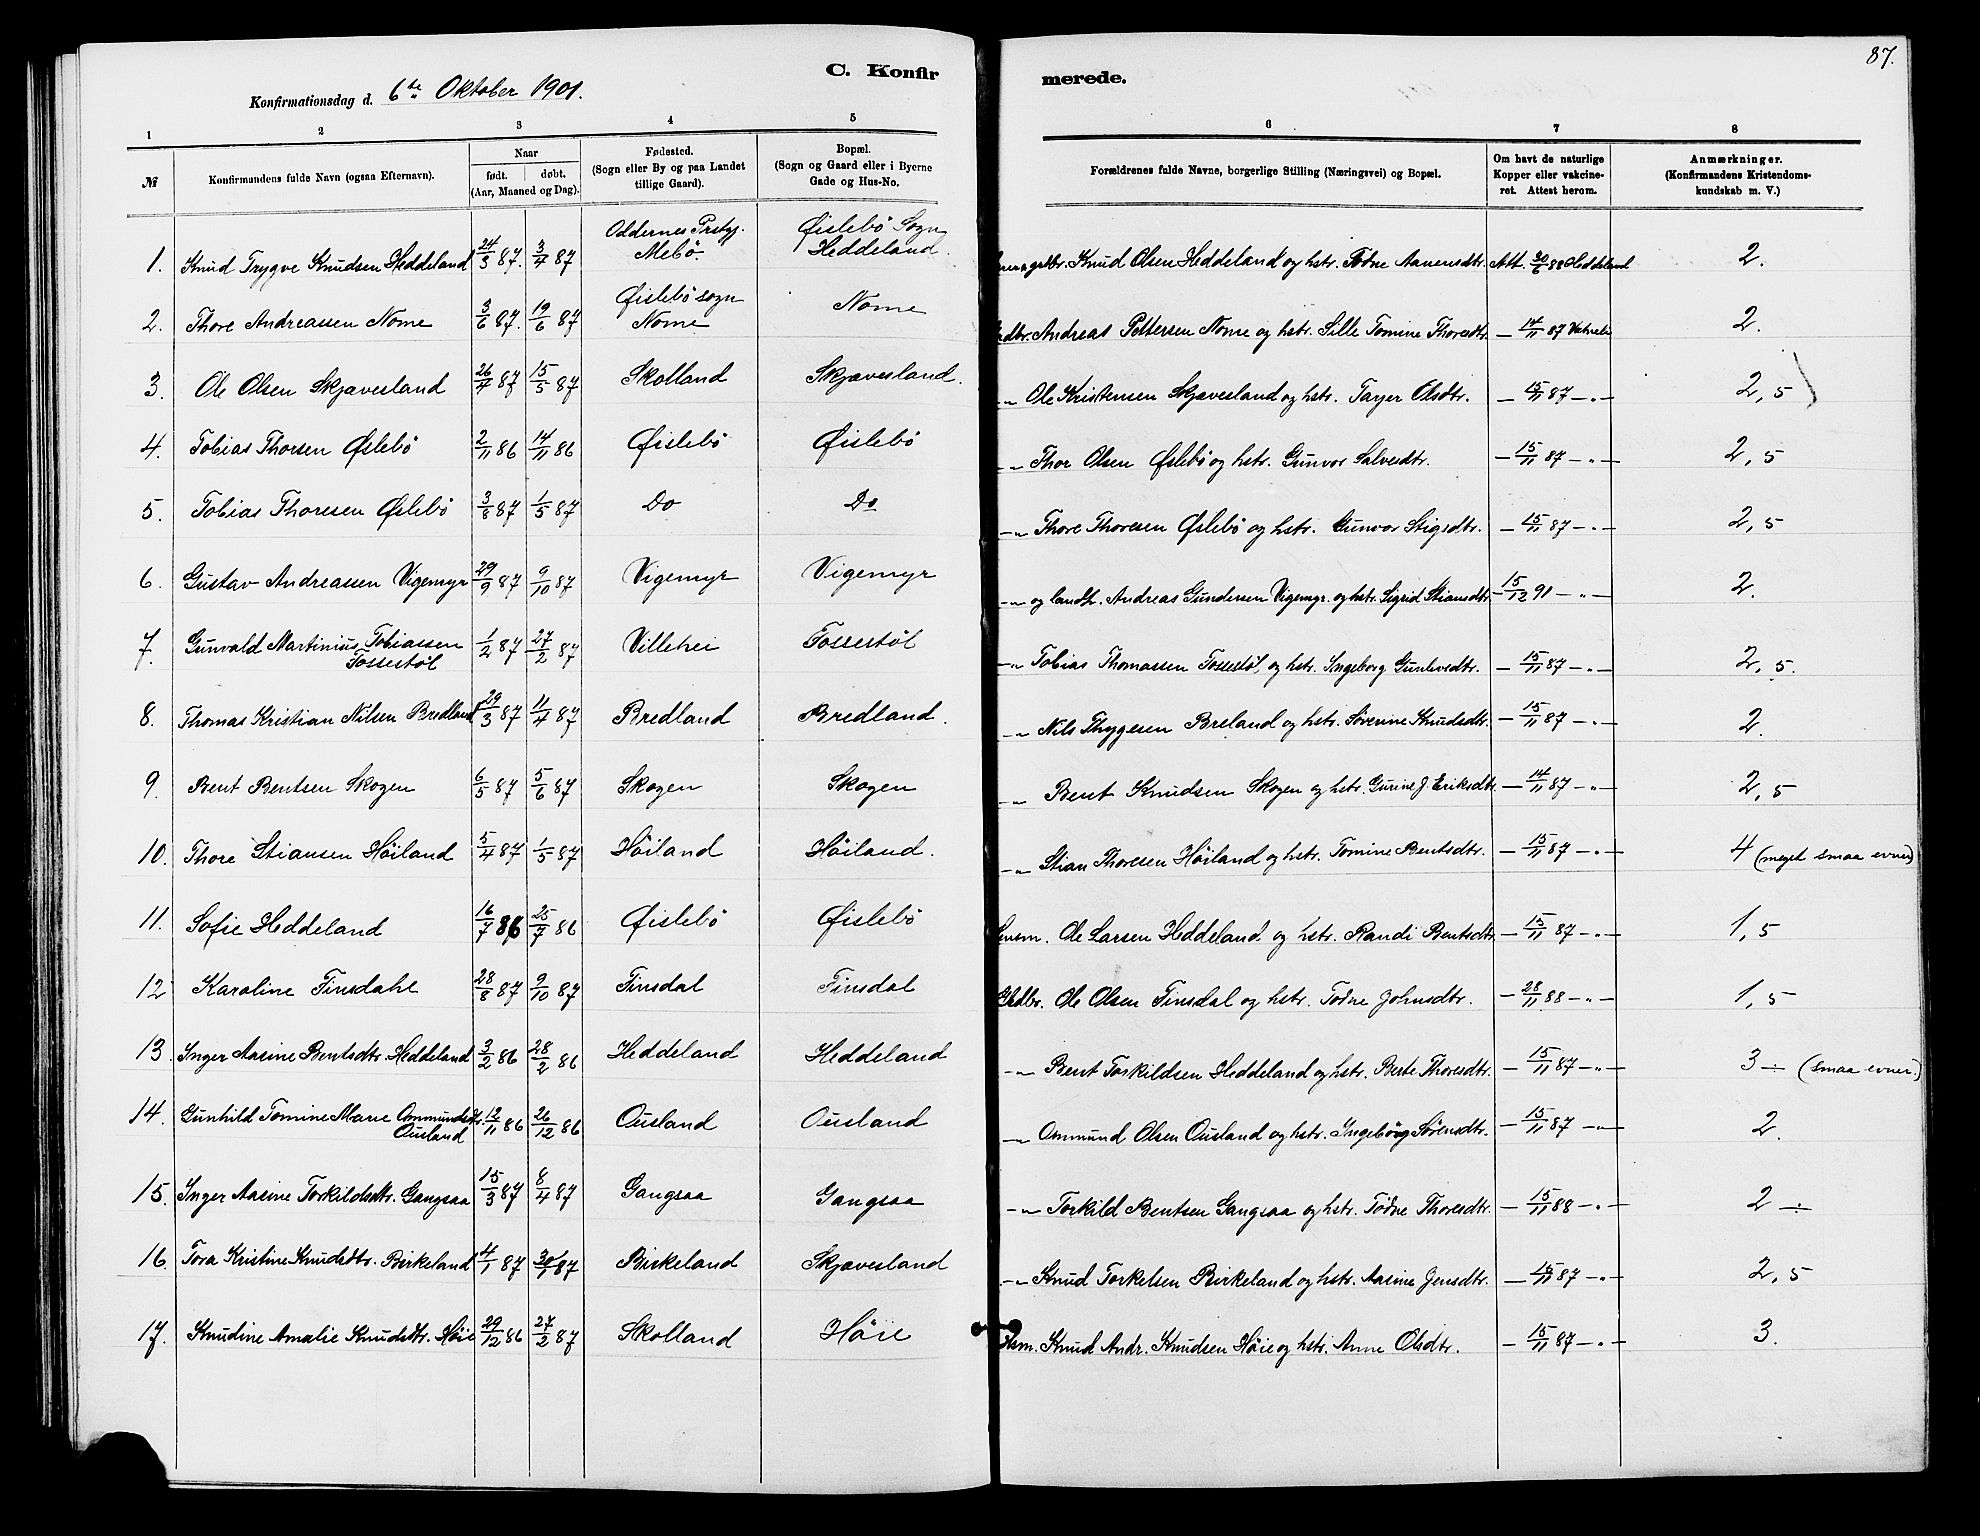 87.
C. Konfir
merede.
Konfirmationsdag d. 6te Oktober 1901.
1 2 3 4 5 6 7 8
№ Konfirmandens fulde Navn (ogsaa Efternavn). Naar født. døbt. (Aar, Maaned og Dag). Fødested. (Sogn eller By og paa Landet tillige Gaard). Bopæl. (Sogn og Gaard eller i Byerne Gade og Hus-No. Forældrenes fulde Navne, borgerlige Stilling (Næringsvei) og Bopæl. Om havt de naturlige Kopper eller vakcineret. Attest herom. Anmærkninger. (Konfirmandens Kristendomskundskab m. V.)
1. Knud Trygve Knudsen Heddeland 24/3 87. 3/4 87 Oddernes Prstgj. Mebö. Øislebö Sogn Heddeland. Knud Olsen Heddeland og hstr. Tödne Aanensdtr. Att. 20/6 88 Heddeland 2.
2. Thore Andreassen Nome 3/6 87. 19/6 87 Øislebö sogn Nome Nome Andreas Pettersen Nome og hstr. Sille Tomine Thoresdtr. — 14/11 87 2.
3. Ole Olsen Skjævesland 26/4 87 15/5 87 Skolland Skjævesland. —„— Ole Kristensen Skjævesland og hstr. Tarjer Olsdtr. — 15/11 87 —„— 2,5
4. Tobias Thorsen Øslebö 2/11 86 14/11 86 Øislebö Øislebö —„— Thor Olsen Øslebö og hstr. Gunvor Salvesdtr. — 15/11 87 —„— 2,5
5. Tobias Thoresen Øslebö 3/8 87 1/5 87 Do Do —„— Thore Thoresen Øslebö og hstr. Gunvor Stigsdtr. — 15/11 87 —„— 2,5
6. Gustav Andreassen Vigemyr 29/9 87 9/10 87 Vigemyr Vigemyr —„— og landh. Andreas Gundersen Vigemyr. og hstr. Sigrid Stiansdtr. — 15/12 91 —„— 2.
7. Gunvald Martinius Tobiassen Fossestöl 1/2 87 27/2 87 Villehei Fossestöl —„— Tobias Thomassen Fossestöl, og hstr. Ingeborg Gunlevsdtr. — 15/11 87 —„— 2,5.
8. Thomas Kristian Nilsen Bredland 29/3 87 11/4 87 Bredland Bredland. —„— Nils Thygesen Breland og hstr. Severine Knudsdtr. — 15/11 87 —„— 2.
9. Bent Bentsen Skogen 6/5 87 5/6 87 Skogen Skogen —„— Bent Knudsen Skogen og hstr. Gurine J. Eriksdtr. — 14/11 87 —„— 2,5
10. Thore Stiansen Höiland 5/4 87 1/5 87 Höiland Höiland. —„— Stian Thoresen Höiland og hstr. Tomine Bentsdtr. — 15/11 87 —„— 4 (meget smaa evner)
11. Sofie Heddeland 16/7 86 25/7 86 Øislebö Øislebö Ole Larsen Heddeland og hstr. Randi Bentsdtr. — 15/11 87 —„— 1,5
12 Karoline Finsdahl 28/8 87 9/10 87 Finsdal Finsdal Gdbr. Ole Olsen Finsdal og hstr. Tödne Johnsdtr. — 28/11 88 —„— 1,5
13. Inger Aasine Bentsdtr. Heddeland 3/2 86 28/2 86 Heddeland Heddeland —„— Bent Torkildsen Heddeland og hstr. Berte Thoresdtr. — 15/11 87 —„— 3 ÷ (smaa evner.)
14. Gunhild Tomine Marie Ommundsdtr. Ousland 12/11 86 26/12 86 Ousland Ousland —„— Ommund Olsen Ousland og hstr. Ingeborg Sörensdtr. — 15/11 87 —„— 2.
15. Inger Aasine Torkildsdtr. Gangsaa 15/3 87 8/4 87 Gangsaa Gangsaa —„— Torkild Bentsen Gangsaa og hstr. Tödne Thoresdtr. — 15/11 88 —„— 2 ÷
16. Tora Kristine Knudsdtr. Birkeland 4/1 87 30/1 87 Birkeland Skjævesland —„— Knud Torkelsen Birkeland og hstr. Aasine Jensdtr. — 15/11 87 —„— 2,5
17. Knudine Amalie Knudsdtr. Höie 29/12 86 27/2 87 Skolland Höie Knud Andr. Knudsen Höie og hstr. Anne Olsdtr. — 15/11 87 —„— 3.